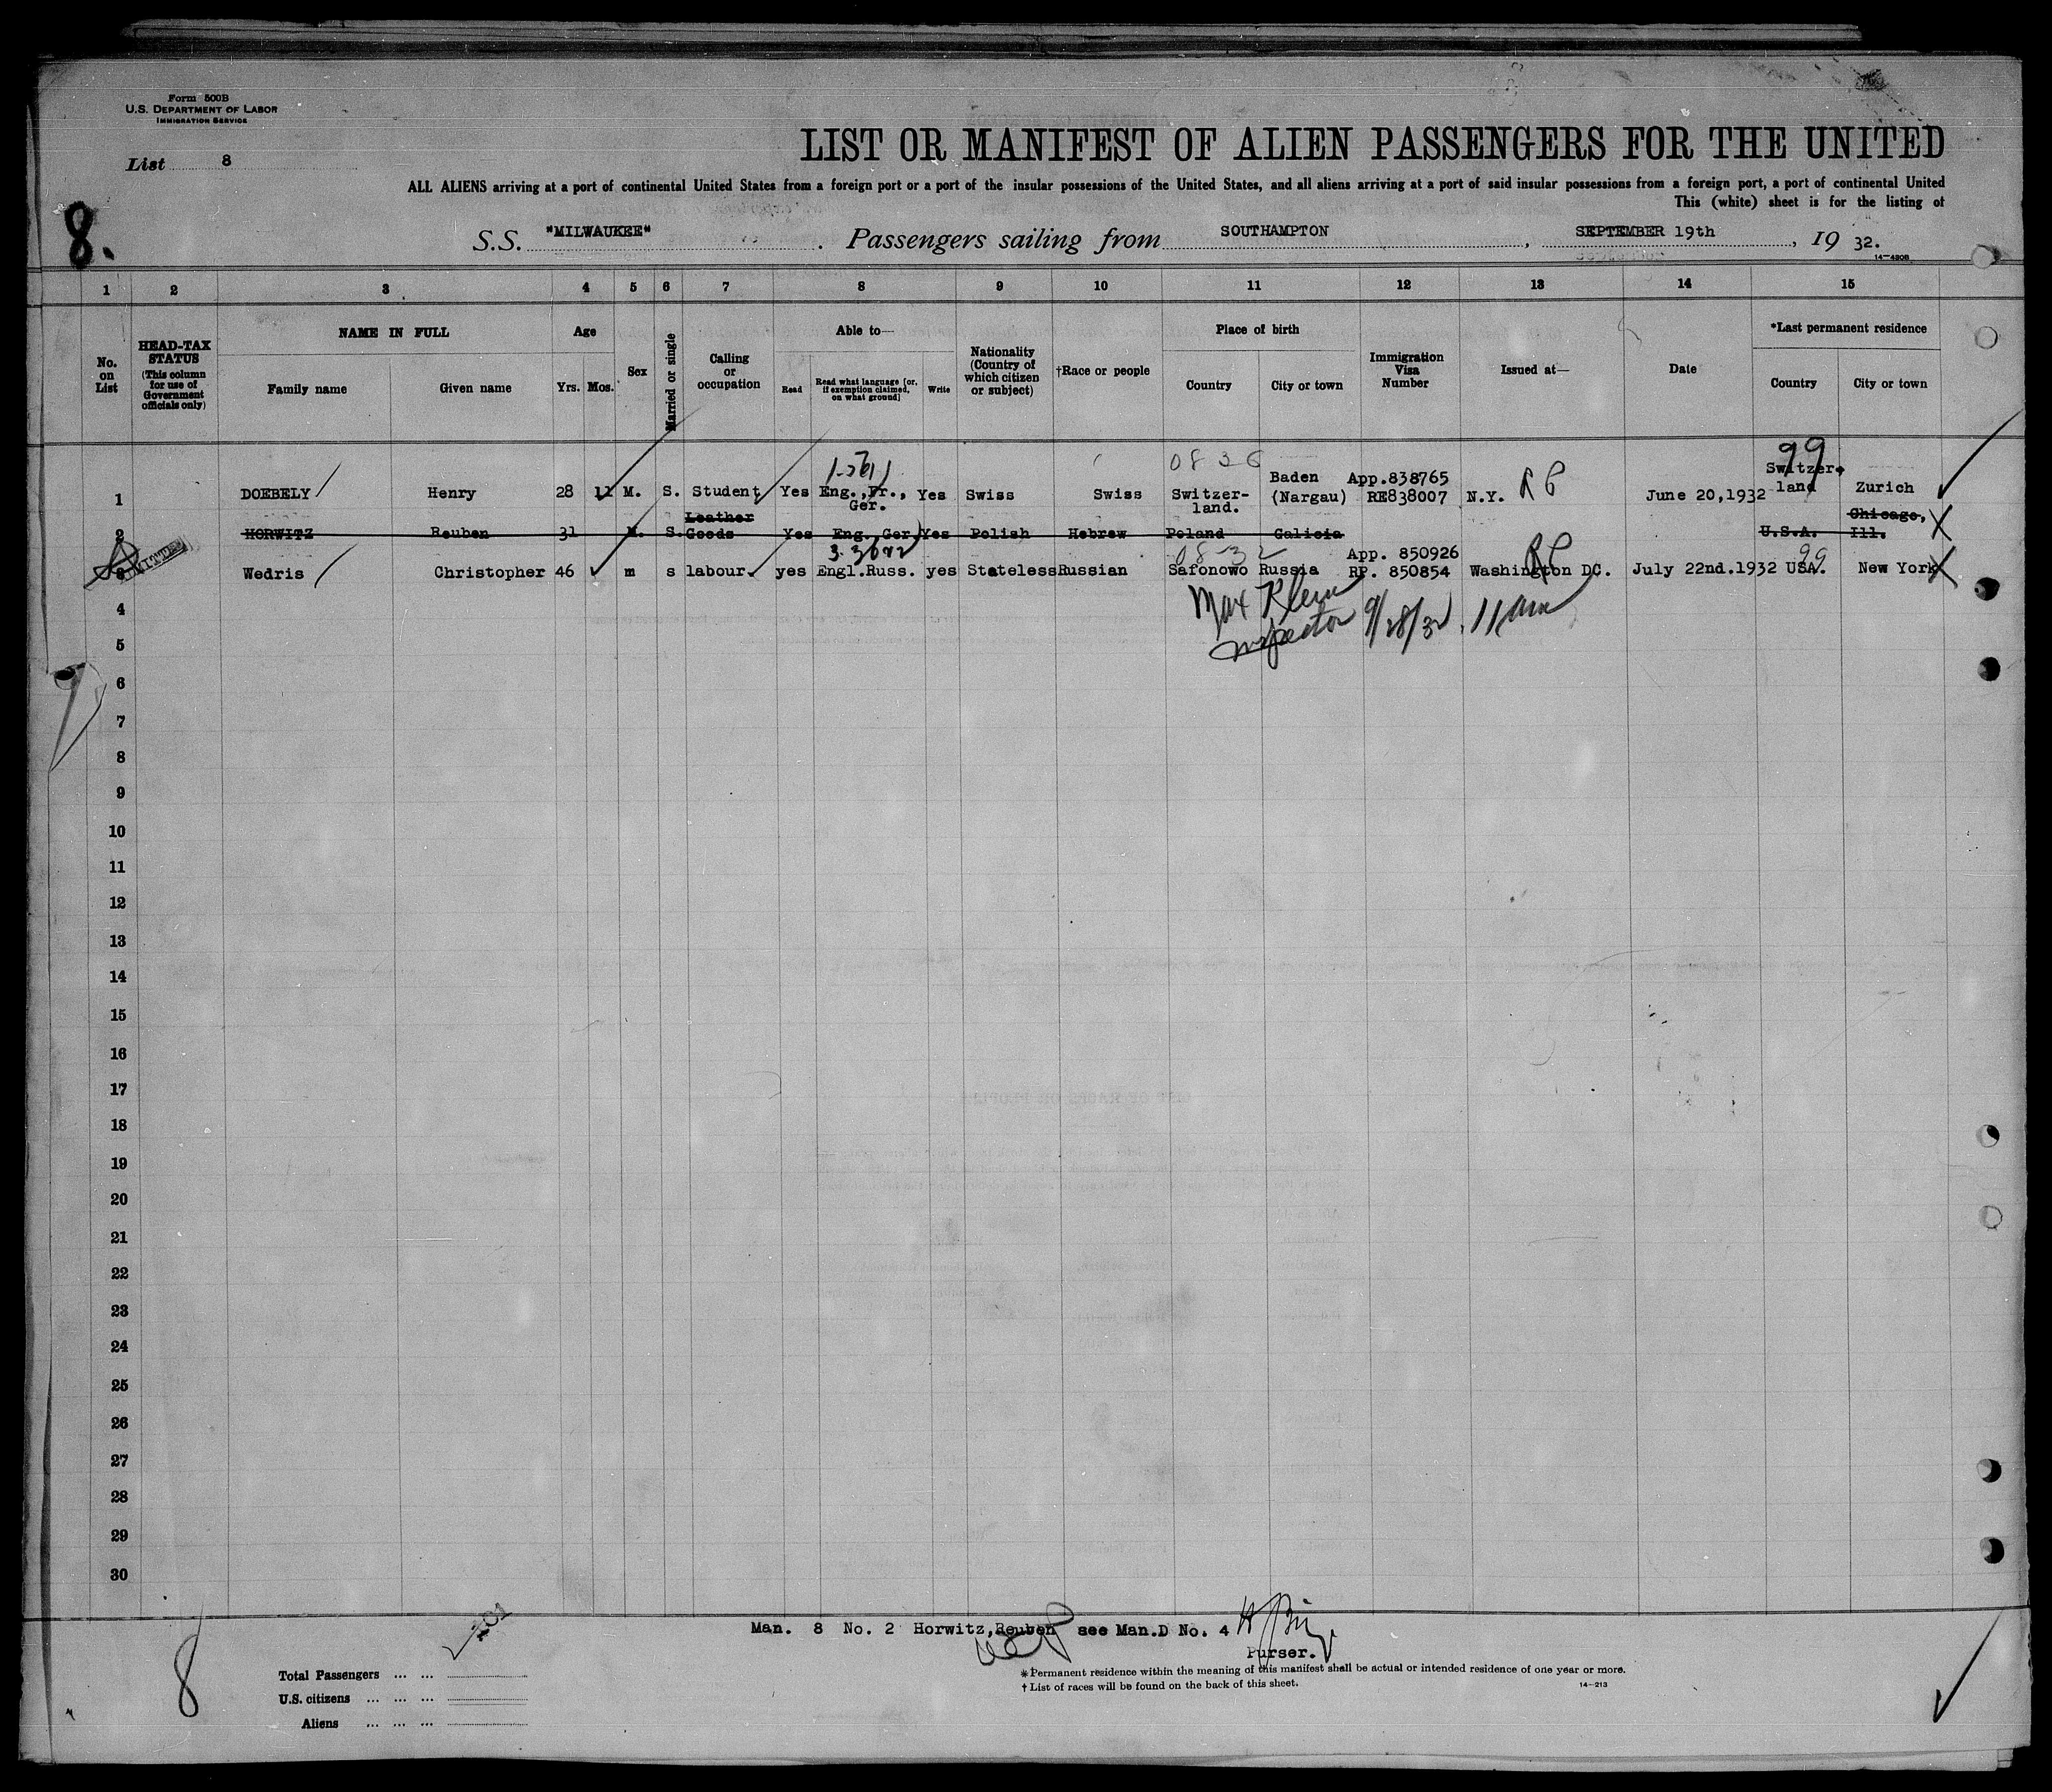 Form 500B
U.S. DEPARTMENT OF LABOR
IMMIGRATION SERVICE
List 8
LIST OR MANIFEST OF ALIEN PASSENGERS FOR THE UNITED
ALL ALIENS arriving at a port of continental United States from a foreign port or a port of the insular possessions of the United States, and all aliens arriving at a port of said insular possessions from a foreign port, a port of continental United
This (white) sheet is for the listing of
8.
S.S. "MILWAUKEE" . Passengers sailing from SOUTHAMPTON , SEPTEMBER 19th , 19 32.
14—430B
1 2 3 4 5 6 7 8 9 10 11 12 13 14 15
No. on List
HEAD-TAX STATUS (This column for use of Government officials only)
NAME IN FULL
Family name
Given name
Age
Yrs. Mos.
Sex
Married or single
Calling or occupation
Able to—
Read
Read what language [or, if exemption claimed, on what ground]
Write
Nationality (Country of which citizen or subject)
†Race or people
Place of birth
Country
City or town
Immigration Visa Number
Issued at—
Date
*Last permanent residence
Country
City or town
99
0 8 3 6
1 DOEBELY Henry 28 11 M. S. Student Yes Eng.,Fr., Ger. Yes Swiss Swiss Switzer-land. Baden (Nargau) App.838765 RE838007 N.Y. June 20,1932 Switzer-land Zurich
2 HORWITZ Reuben 31 M. S. Leather Goods Yes Eng., Ger. Yes Polish Hebrew Poland Galicia U.S.A. Chicago, Ill.
3 Wedris Christopher 46 m s labour. yes Engl.Russ. yes Stateless Russian Safonowo Russia App. 850926 RP. 850854 Washington DC. July 22nd.1932 USA. New York
08-32
99
Max Klein
Inspector 9/28/32. 11 am
4
5
6
7
8
9
10
11
12
13
14
15
16
17
18
19
20
21
22
23
24
25
26
27
28
29
30
Man. 8 No. 2 Horwitz,Reuben see Man.D No. 4
Purser.
8
Total Passengers ... ...
U.S. citizens ... ... ...
Aliens ... ... ...
*Permanent residence within the meaning of this manifest shall be actual or intended residence of one year or more.
† List of races will be found on the back of this sheet.
14—213